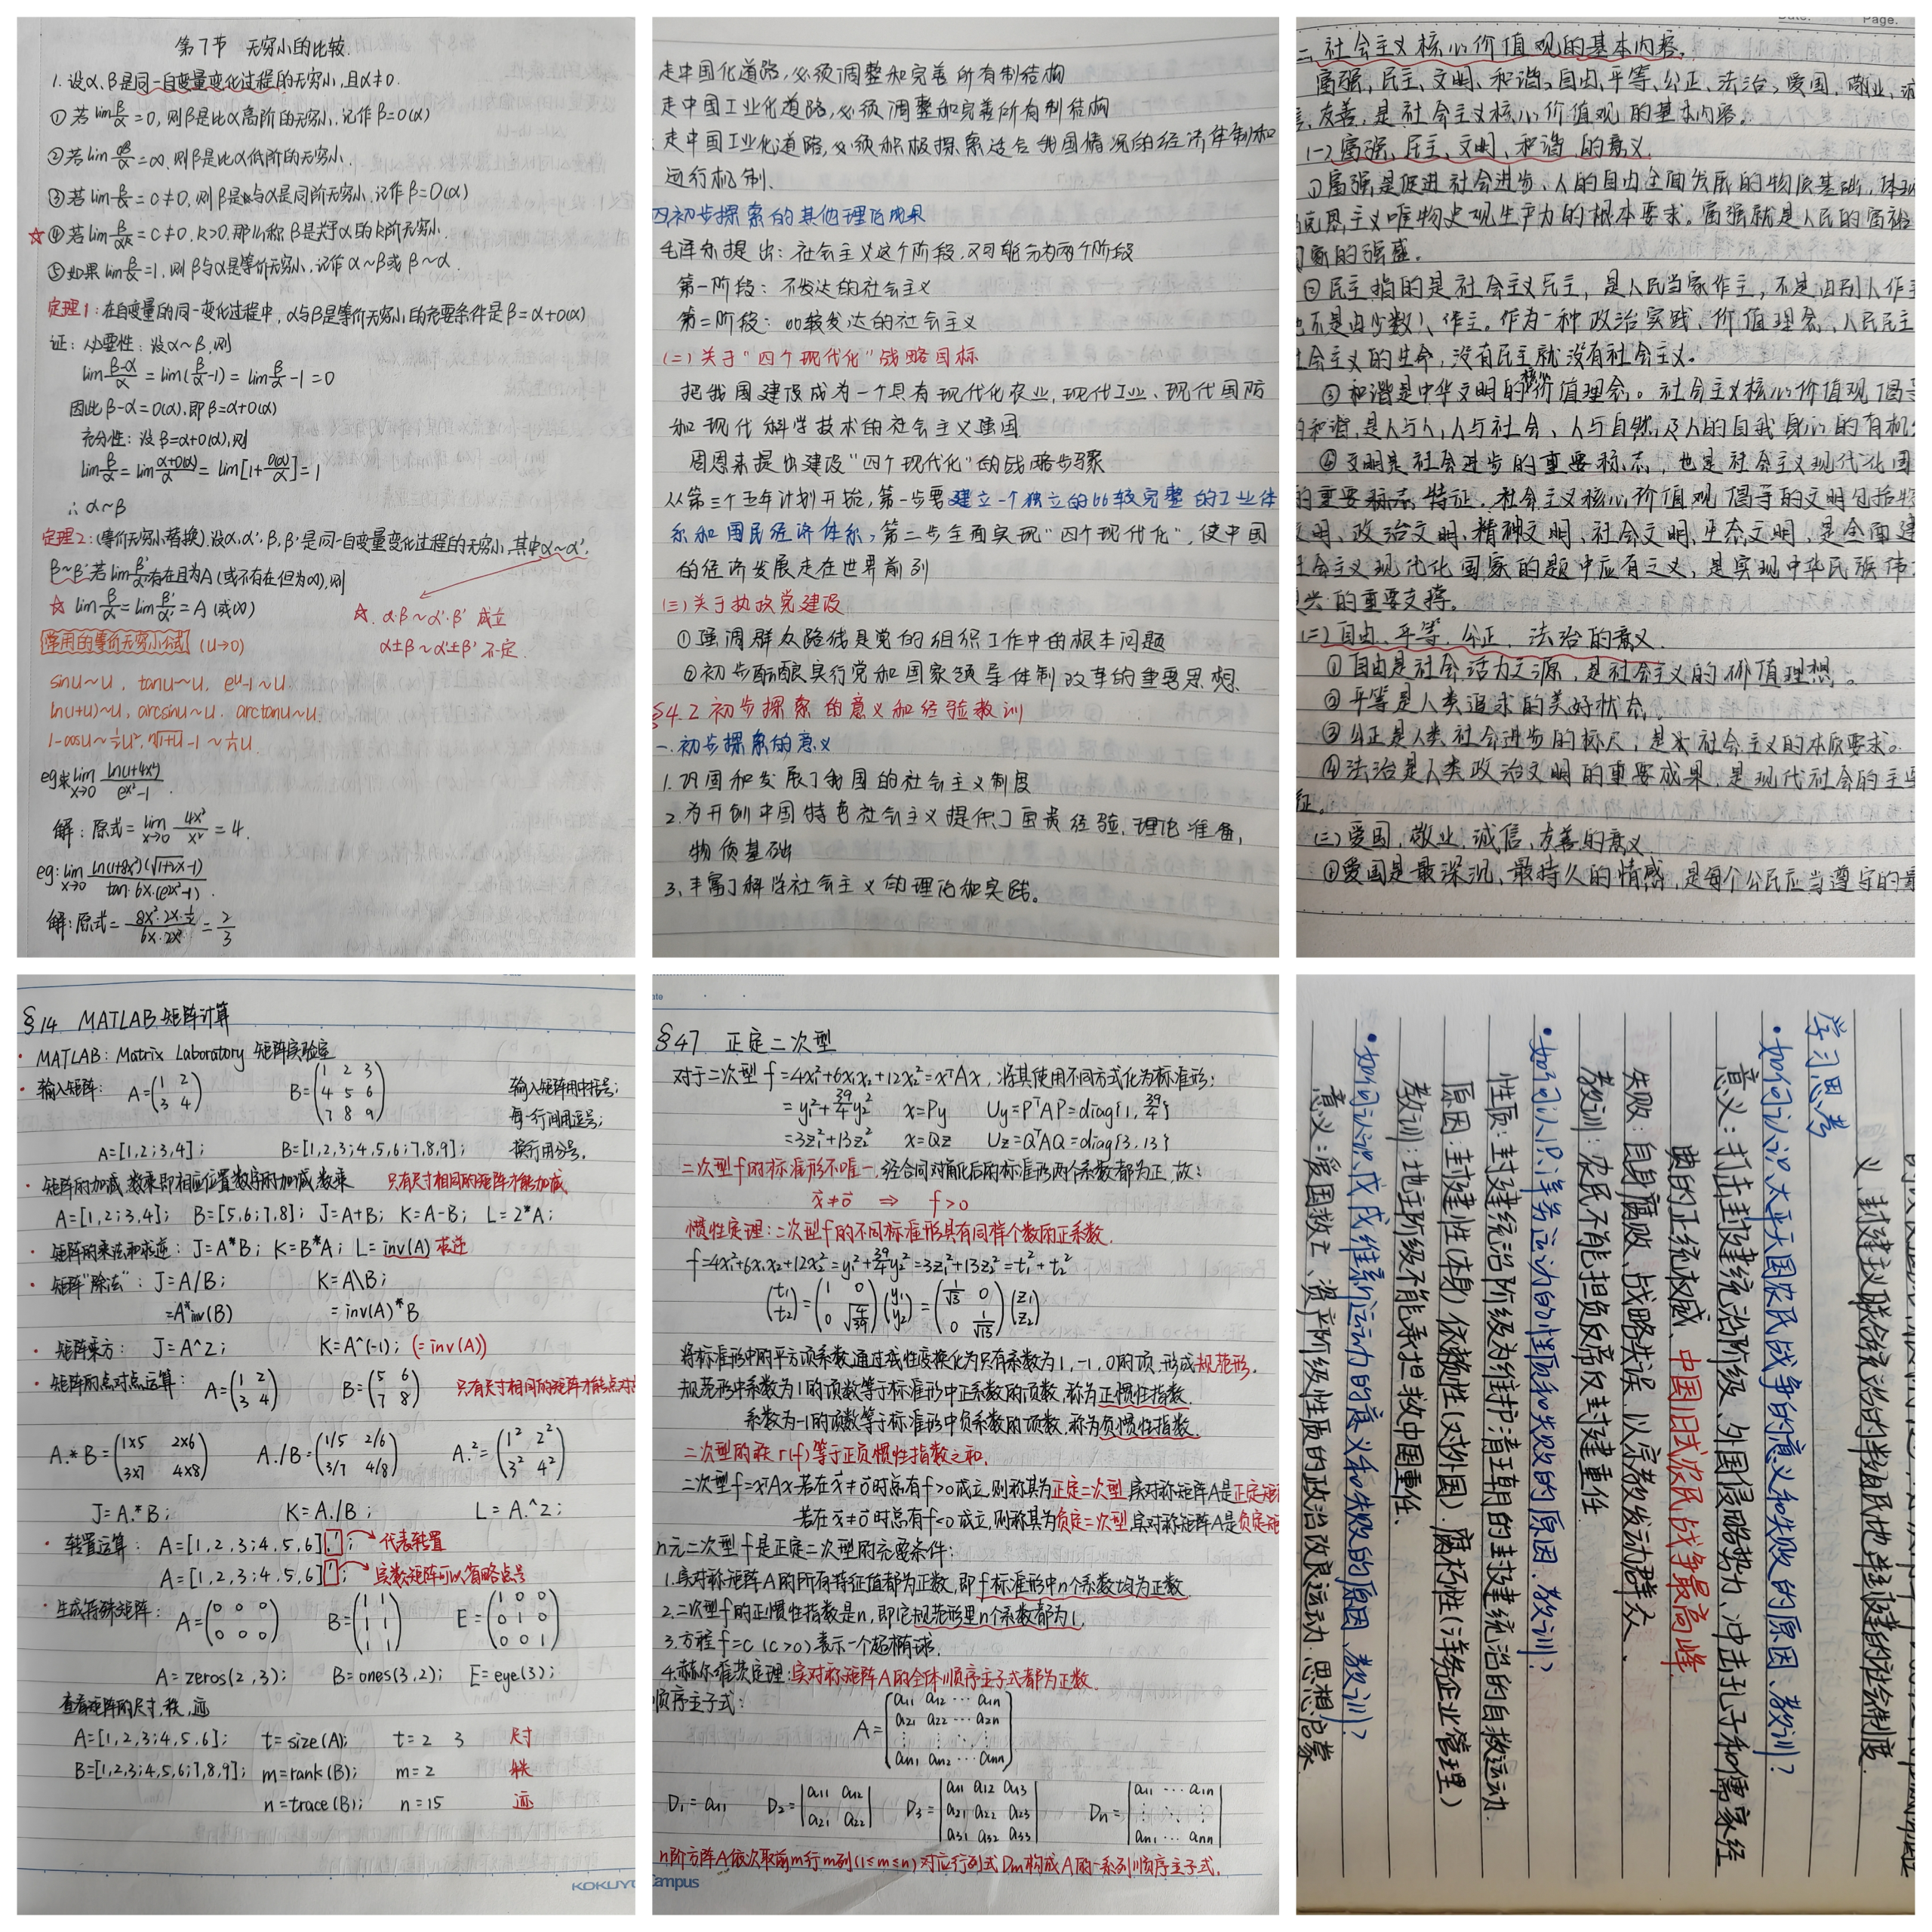 第7节 无穷小的比较.
1.设α、β是同一自变量变化过程的无穷小,且α≠0.
①若lim β/α=0,则β是比α高阶的无穷小,记作β=0(α)
②若lim =∞,则β是比α低阶的无穷小.
③若lim β/α=C≠0,则β是与α是同阶无穷小.记作β=O(α)
☆④若lim β/αᵏ=C≠0.k>0.那么称β是关于α的k阶无穷小.
⑤如果lim β/α=1.则β与α是等价无穷小.记作α~β或β~α.
定理1:在自变量的同一变化过程中,α与β是等价无穷小的充要条件是β=α+0(α)
证:必要性:设α~β,则
lim (β-α)/α=lim(β/α-1)=lim β/α-1=0
因此β-α=0(α).即β=α+0(α)
充分性:设β=α+0(α),则
lim β/α=lim (α+0(α))/α=lim[1+0(α)/α]=1
∴α~β
定理2:(等价无穷小替换).设α,α'.β,β'是同一自变量变化过程的无穷小,其中α~α'.
β~β'若lim β'/α'存在且为A(或不存在但为∞),则
☆ lim β/α=lim β'/α'=A(或∞)
☆.α·β~α'·β' 成立
α±β~α'±β' 不定.
常用的等价无穷小公式 (u→0)
sinu~u, tanu~u, eᵘ-1~u
ln(1+u)~u, arcsinu~u. arctanu~u.
1-cosu~½u², ⁿ√1+u-1~1/n u.
eg求lim x→0
解:原式=lim x→0 =4.
eg:lim x→0
解:原式= =2/3
走中国化道路,必须调整和完善所有制结构
走中国工业化道路,必须调整和完善所有制结构
走中国工业化道路,必须积极探索适合我国情况的经济体制和
运行机制.
四.初步探索的其他理论成果
毛泽东提出:社会主义这个阶段,又可能分为两个阶段
第一阶段:不发达的社会主义
第二阶段:比较发达的社会主义
(二)关于"四个现代化"战略目标
把我国建设成为一个具有现代化农业,现代工业、现代国防
和现代科学技术的社会主义强国
周恩来提出建设"四个现代化"的战略步骤
从第三个五年计划开始,第一步要建立一个独立的比较完整的工业体
系和国民经济体系,第二步全面实现"四个现代化",使中国
的经济发展走在世界前列
(三)关于执政党建设
①强调群众路线是党的组织工作中的根本问题
②初步酝酿实行党和国家领导体制改革的重要思想.
§4.2 初步探索的意义和经验教训
一.初步探索的意义
1.巩固和发展了我国的社会主义制度
2.为开创中国特色社会主义提供了宝贵经验,理论准备,
物质基础
3.丰富了科学社会主义的理论和实践。
Page.
二.社会主义核心价值观的基本内容.
富强,民主、文明、和谐,自由,平等、公正、法治,爱国,敬业,
友善,是社会主义核心价值观的基本内容。
(一)富强、民主、文明、和谐 的意义.
①富强是促进社会进步、人的自由全面发展的物质基础,体现
主义唯物史观生产力的根本要求。富强就是人民的富裕
家的强盛.
②民主指的是社会主义民主,是人民当家作主,不是由别人作主
不是由少数人作主。作为一种政治实践、价值理念,人民民主
会主义的生命,没有民主就没有社会主义。
③和谐是中华文明的核心价值理念。社会主义核心价值观倡导
和谐,是人与人,人与社会、人与自然,及人的自我身心的有机
④文明是社会进步的重要标志,也是社会主义现代化国
的重要标志、特征.社会主义核心价值观倡导的文明包括物
文明、政治文明、精神文明、社会文明、生态文明,是全面建
会主义现代化国家的题中应有之义,是实现中华民族伟
兴的重要支撑。
(二)自由、平等、公正、法治的意义.
①自由是社会活力之源,是社会主义的价值理想。
②平等是人类追求的美好状态.
③公正是人类社会进步的标尺,是社会主义的本质要求。
④法治是人类政治文明的重要成果,是现代社会的主要
征。
(三)爱国,敬业,诚信、友善的意义
①爱国是最深沉、最持久的情感,是每个公民应当遵守的最
§14 MATLAB 矩阵计算
· MATLAB: Matrix Laboratory 矩阵实验室
· 输入矩阵: A=(1 2 3 4) B=(1 2 3 4 5 6 7 8 9) 输入矩阵用中括号;
每一行间用逗号;
A=[1,2;3,4]; B=[1,2,3;4,5,6;7,8,9]; 换行用分号.
· 矩阵的加减,数乘即相应位置数字的加减,数乘 只有尺寸相同的矩阵才能加减
A=[1,2;3,4]; B=[5,6;7,8]; J=A+B; K=A-B; L=2*A;
· 矩阵的乘法和求逆: J=A*B; K=B*A; L=inv(A) 求逆
· 矩阵"除法": J=A/B; K=A\B;
=A*inv(B) =inv(A)*B
· 矩阵乘方: J=A^2; K=A^(-1); (=inv(A))
· 矩阵的点对点运算: A=(1 2 3 4) B=(5 6 7 8) 只有尺寸相同的矩阵才能点对
A.*B=(1×5 2×6 3×7 4×8) A./B=(1/5 2/6 3/7 4/8) A.²=(1² 2² 3² 4²)
J=A.*B; K=A./B; L=A.^2;
· 转置运算: A=[1,2,3;4,5,6].'; → 代表转置
A=[1,2,3;4,5,6]'; → 实数矩阵可以省略点号
· 生成特殊矩阵: A=(0 0 0 0 0 0) B=(1 1 1 1 1 1) E=(1 0 0 0 1 0 0 0 1)
A=zeros(2,3); B=ones(3,2); E=eye(3);
查看矩阵的尺寸,秩,迹
A=[1,2,3;4,5,6]; t=size(A); t=2 3 尺寸
B=[1,2,3;4,5,6;7,8,9]; m=rank(B); m=2 秩
n=trace(B); n=15 迹
KOKUYO
§47 正定二次型
对于二次型 f=4x₁²+6x₁x₂+12x₂²=xᵀAx,将其使用不同方式化为标准形:
=y₁²+39/4y₂² x=Py Uy=PᵀAP=diag{1,39/4}
=3z₁²+13z₂² x=Qz Uz=QᵀAQ=diag{3,13}
二次型f的标准形不唯一,经合同对角化后的标准形两个系数都为正,故:
x⃗≠0⃗ ⇒ f>0
惯性定理:二次型f的不同标准形具有同样个数的正系数.
f=4x₁²+6x₁x₂+12x₂²=y₁²+39/4y₂²=3z₁²+13z₂²=t₁²+t₂²
将标准形中的平方项系数通过线性变换化为只有系数为1,-1,0的项,形成规范形.
规范形中系数为1的项数等于标准形中正系数的项数,称为正惯性指数.
系数为-1的项数等于标准形中负系数的项数,称为负惯性指数.
二次型的秩r(f)等于正负惯性指数之和.
二次型f=xᵀAx若在x⃗≠0⃗时总有f>0成立,则称其为正定二次型,实对称矩阵A是正定矩
若在x⃗≠0⃗时总有f<0成立,则称其为负定二次型,实对称矩阵A是负定矩
n元二次型f是正定二次型的充要条件:
1.实对称矩阵A的所有特征值都为正数,即f标准形中n个系数均为正数.
2.二次型f的正惯性指数是n,即它规范形里n个系数都为1.
3.方程f=c (c>0)表示一个超椭球.
4.赫尔维茨定理:实对称矩阵A的全体顺序主子式都为正数.
顺序主子式: A=[a₁₁ a₁₂ ⋯ a₁ₙ
a₂₁ a₂₂ ⋯ a₂ₙ
⋮ ⋮ ⋱ ⋮
aₙ₁ aₙ₂ ⋯ aₙₙ]
D₁=a₁₁ D₂=|a₁₁ a₁₂ a₂₁ a₂₂| D₃=|a₁₁ a₁₂ a₁₃ a₂₁ a₂₂ a₂₃ a₃₁ a₃₂ a₃₃| Dₙ=|a₁₁ ⋯ a₁ₙ ⋮ ⋮ aₙ₁ ⋯ aₙₙ|
n阶方阵A依次取前m行m列(1≤m≤n)对应行列式Dm构成A的一系列顺序主子式.
Campus
义、封建主义联合统治的半殖民地半封建的社会制度
学习思考
·如何认识太平天国农民战争的意义和失败的原因、教训?
意义:打击封建统治阶级、外国侵略势力、冲击孔子和儒家经
典的正统权威、中国旧式农民战争最高峰
失败:自身腐败、战略失误、以宗教发动群众、
教训:农民不能担负反封建重任
·如何认识洋务运动的性质和失败的原因、教训?
性质:封建统治阶级为维护清王朝的封建统治的自救运动.
原因:封建性(本身)依赖性(对外国).腐朽性(洋务企业管理)
教训:地主阶级不能承担救中国重任.
·如何认识戊戌维新运动的意义和失败的原因、教训?
意义:爱国救亡、资产阶级性质的政治改良运动、思想启蒙